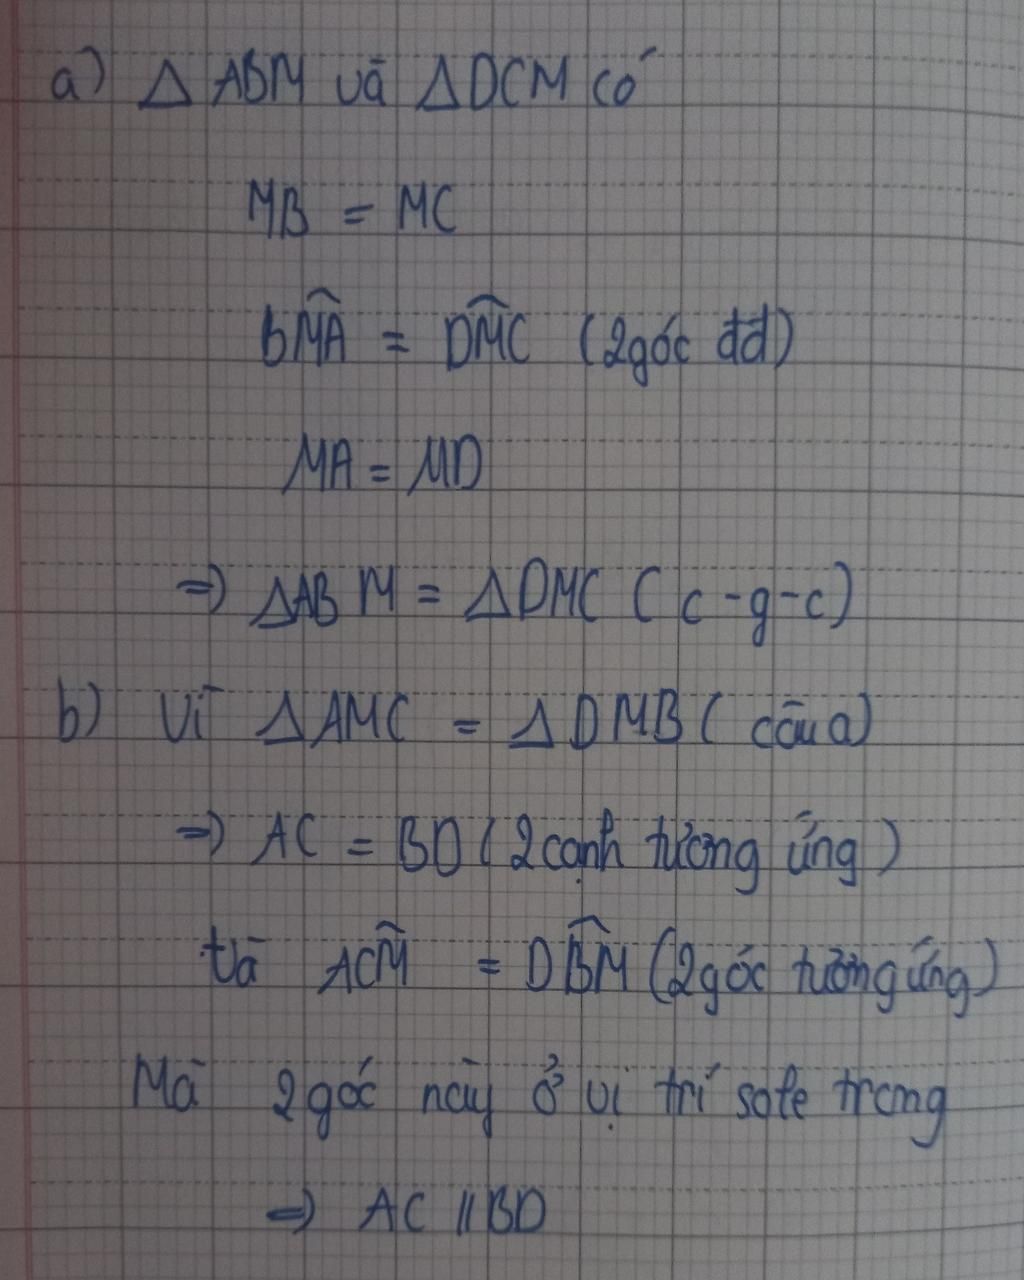 a) Δ ABM và ΔDCM có
MB = MC
bM̂A = DM̂C (2góc đđ)
MA = MD
=) ΔAB M = ΔDMC ( c-g-c)
b) Vì Δ AMC = Δ DMB ( câu a)
=) AC = BD ( 2 cạnh tương ứng )
Và ACM̂ = DB̂M (2góc tương ứng)
Mà 2góc này ở vị trí sole trong
=) AC // BD